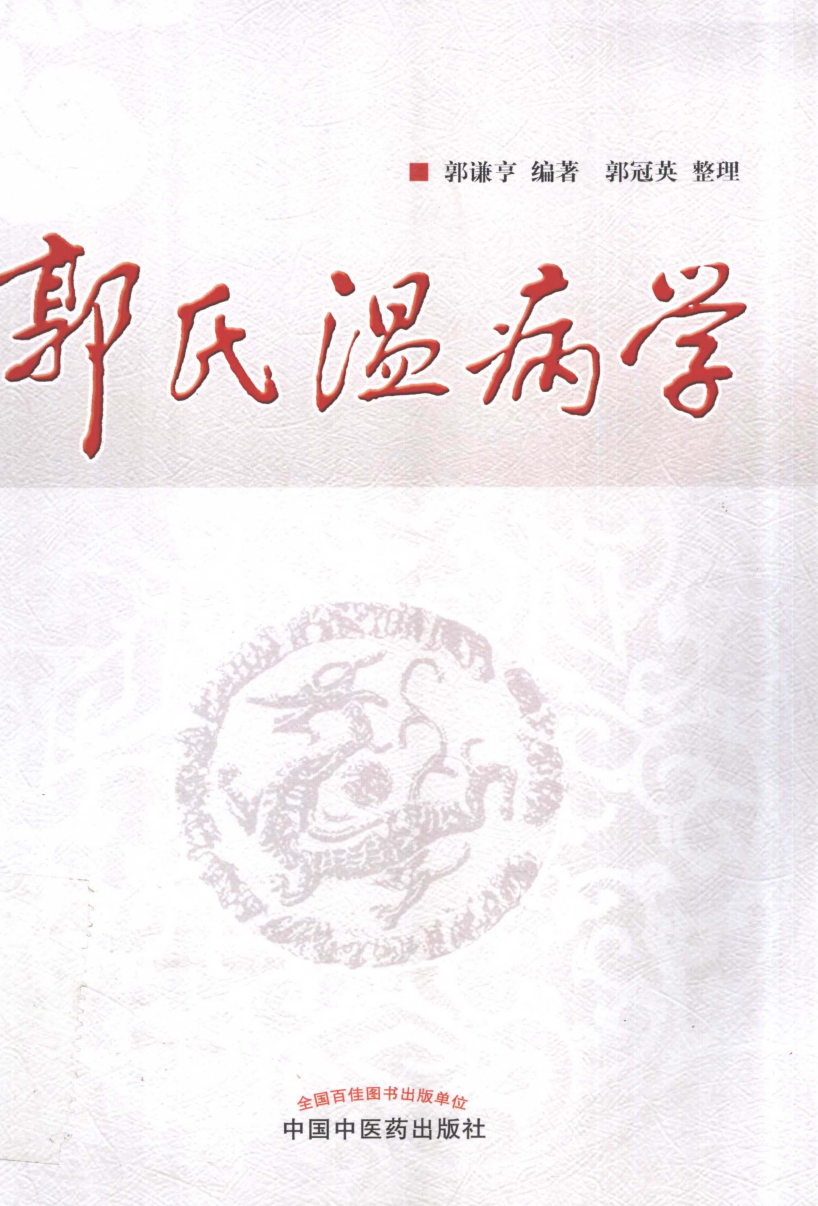 郭谦亨 编著 郭冠英 整理
郭氏温病学
全国百佳图书出版单位
中国中医药出版社